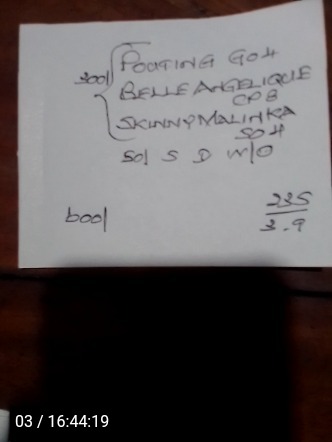 300/ POUTING GO4
BELLE ANGELIQUE
CPB
SKINNYMALINKA
SO4
50/ S D W/O
600/
235
3.9
03 / 16:44:19